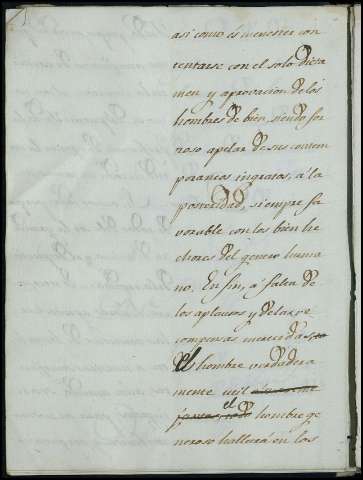 así como és menester con
tentarse con el solo dicta
men y aprovacion de los
hombres de bien, siendo for
zoso apelar de sus contem
poraneos ingratos, á la
posteridad, siempre fa
vorable con los bien he
chores del genero huma
no. En fin, á falta de
los aplausos y de las re
compensas merecidas,
el hombre verdadera
mente util
el hombre ge
neroso hallará en los